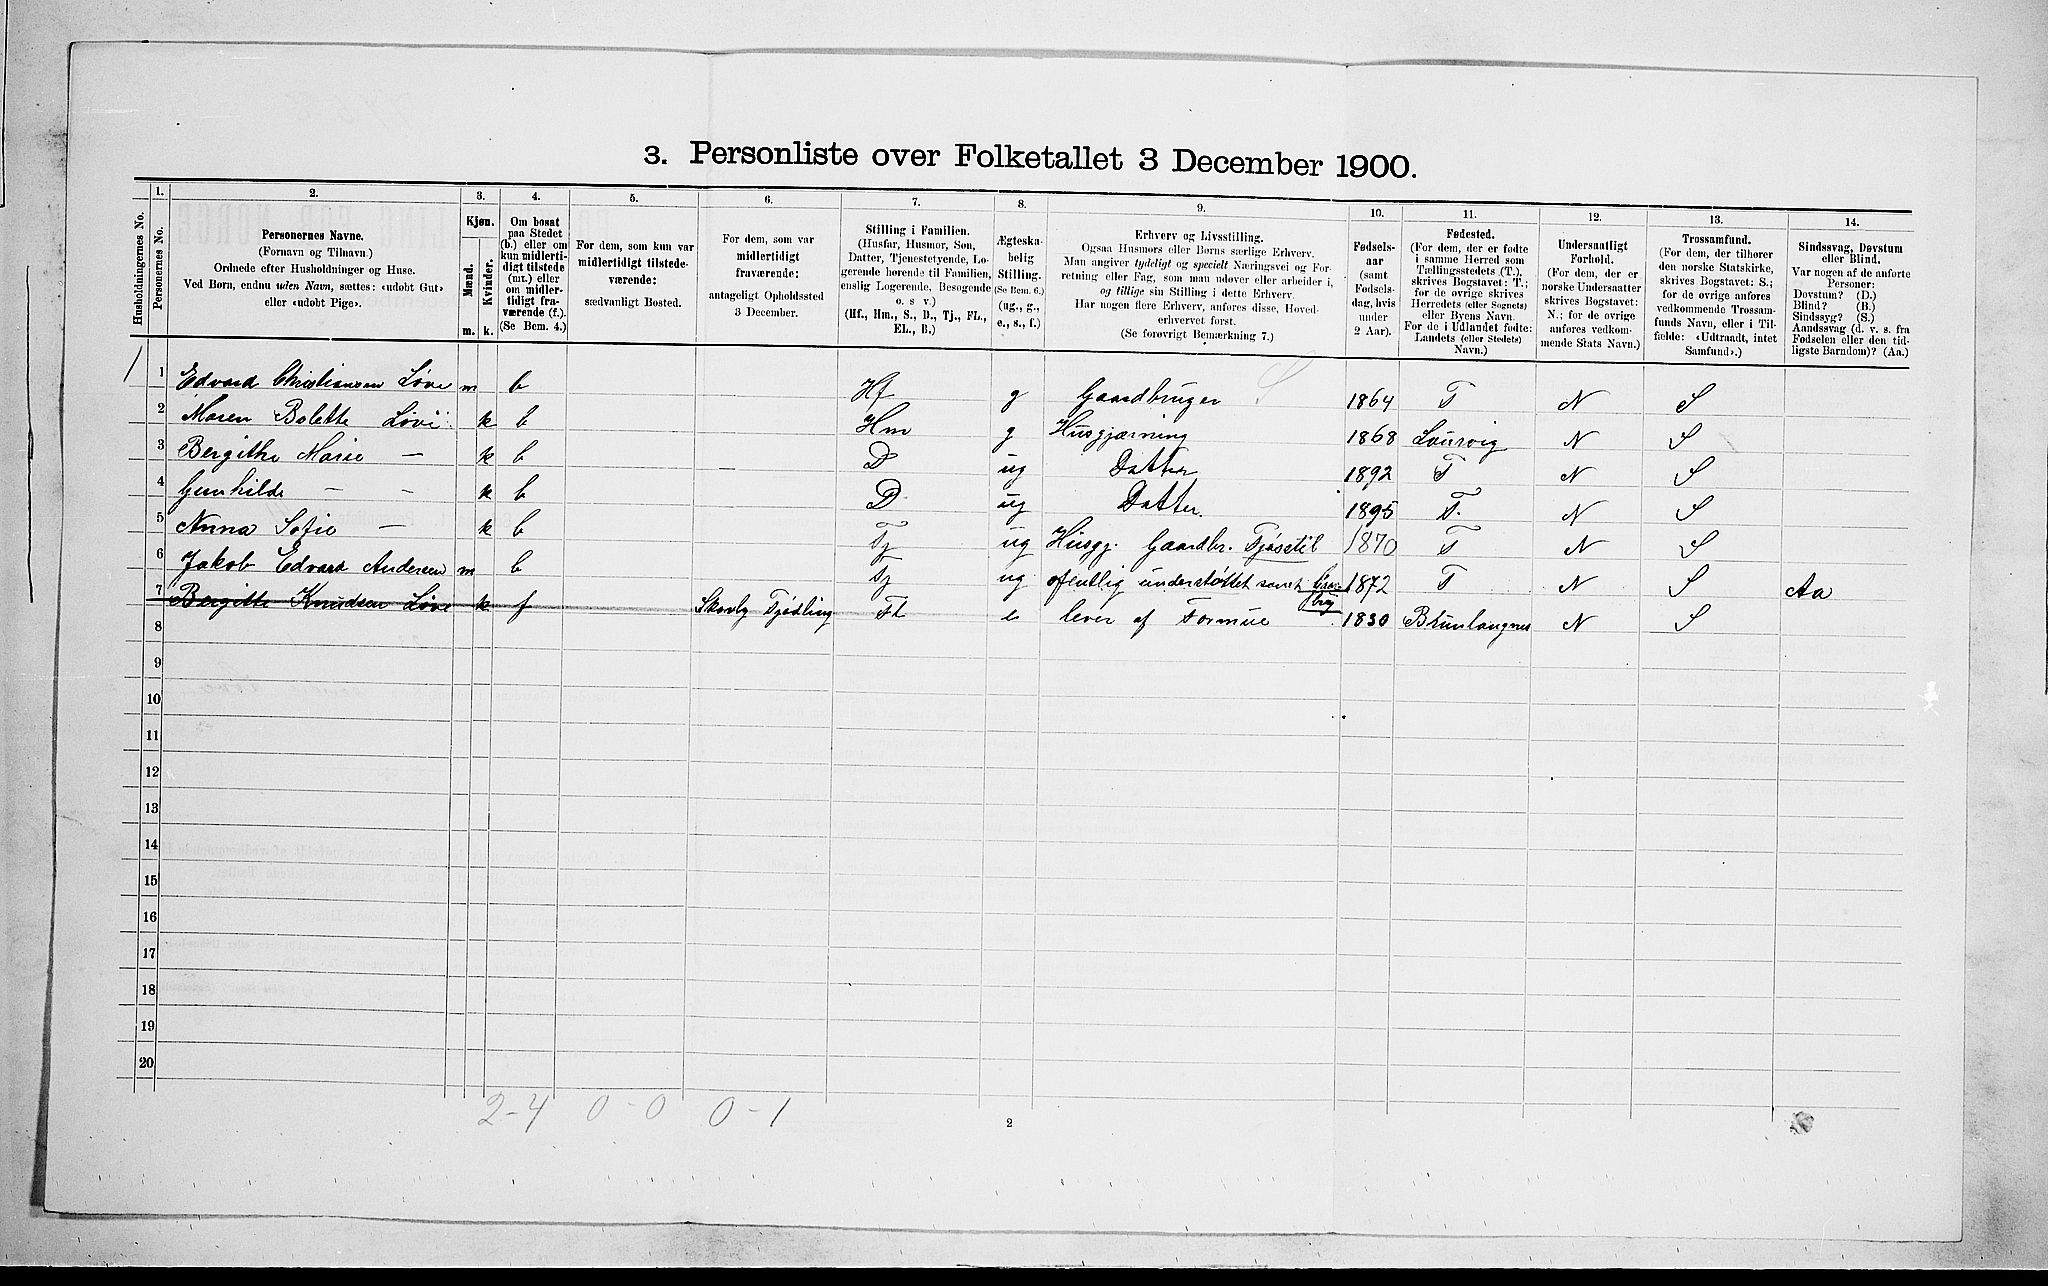 3. Personliste over Folketallet 3 December 1900.
1. 2. 3. 4. 5. 6. 7. 8. 9. 10. 11. 12. 13. 14.
Husholdningernes No.
Personernes No.
Personernes Navne.
(Fornavn og Tilnavn.)
Ordnede efter Husholdninger og Huse.
Ved Børn, endnu uden Navn, sættes: «udøbt Gut»
eller «udøbt Pige».
Kjøn.
Mænd.
Kvinder.
m. k.
Om bosat
paa Stedet
(b.) eller om
kun midlerti-
digt tilstede
(mt.) eller
om midler-
tidigt fra-
værende (f.).
(Se Bem. 4.)
For dem, som kun var
midlertidigt tilstede-
værende:
sædvanligt Bosted.
For dem, som var
midlertidigt
fraværende:
antageligt Opholdssted
3 December.
Stilling i Familien.
(Husfar, Husmor, Søn,
Datter, Tjenestetyende, Lo-
gerende hørende til Familien,
enslig Logerende, Besøgende
o. s. v.)
(Hf., Hm., S., D., Tj., FL.,
EL., B.)
Ægteska-
belig
Stilling.
(Se Bem. 6.)
(ug., g.,
e., s., f.)
Erhverv og Livsstilling.
Ogsaa Husmors eller Børns særlige Erhverv.
Man angiver tydeligt og specielt Næringsvei og For-
retning eller Fag, som man udøver eller arbeider i,
og tillige sin Stilling i dette Erhverv.
Har nogen flere Erhverv, anføres disse, Hoved-
erhvervet først.
(Se forøvrigt Bemærkning 7.)
Fødsels-
aar
(samt
Fødsels-
dag, hvis
under
2 Aar).
Fødested.
(For dem, der er fødte
i samme Herred som
Tællingsstedets (T.),
skrives Bogstavet: T.;
for de øvrige skrives
Herredets (eller Sognets)
eller Byens Navn.
For de i Udlandet fødte:
Landets (eller Stedets)
Navn.)
Undersaatligt
Forhold.
(For dem, der er
norske Undersaatter
skrives Bogstavet:
N.; for de øvrige
anføres vedkom-
mende Stats Navn.)
Trossamfund.
(For dem, der tilhører
den norske Statskirke,
skrives Bogstavet: S.;
for de øvrige anføres
vedkommende Trossam-
funds Navn, eller i Til-
fælde: «Udtraadt, intet
Samfund».)
Sindssvag, Døvstum
eller Blind.
Var nogen af de anførte
Personer:
Døvstum? (D.)
Blind? (B.)
Sindssyg? (S.)
Aandssvag (d. v. s. fra
Fødselen eller den tid-
ligste Barndom)? (Aa.)
1 1 Edvard Christiansen Løve m b Hf g Gaardbruger S 1864 T N S
2 Maren Bolette Løve k b Hm g Husgjærning 1868 Laurvig N S
3 Bergithe Marie — k b D ug Datter 1892 T N S
4 Gunhilde — — k b D ug Datter. 1895 T. N S
5 Anna Sofie — k b Tj ug Husgj. Gaardbr. Fjøsstel 1870 T N S
6 Jakob Edvard Andersen m b Tj ug ofentlig understøttet samt 1872 T N S Aa
7 Bergitte Knudsen Løve k f Skovby Tjødling Fl e lever af Formue 1830 Brunlangnes N S
8
9
10
11
12
13
14
15
16
17
18
19
20
2-4 0-0 0-1
2